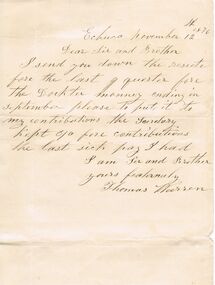 Echuca November 12th
Dear Sir and Brother
I send you down the
fore the last quarter fore
the Docter money ending in
september please to put it to
my contributions the
kept fore contributions
the last sick pay I had
I am Sir and Brother
yours fraternaly
Thomas Warren